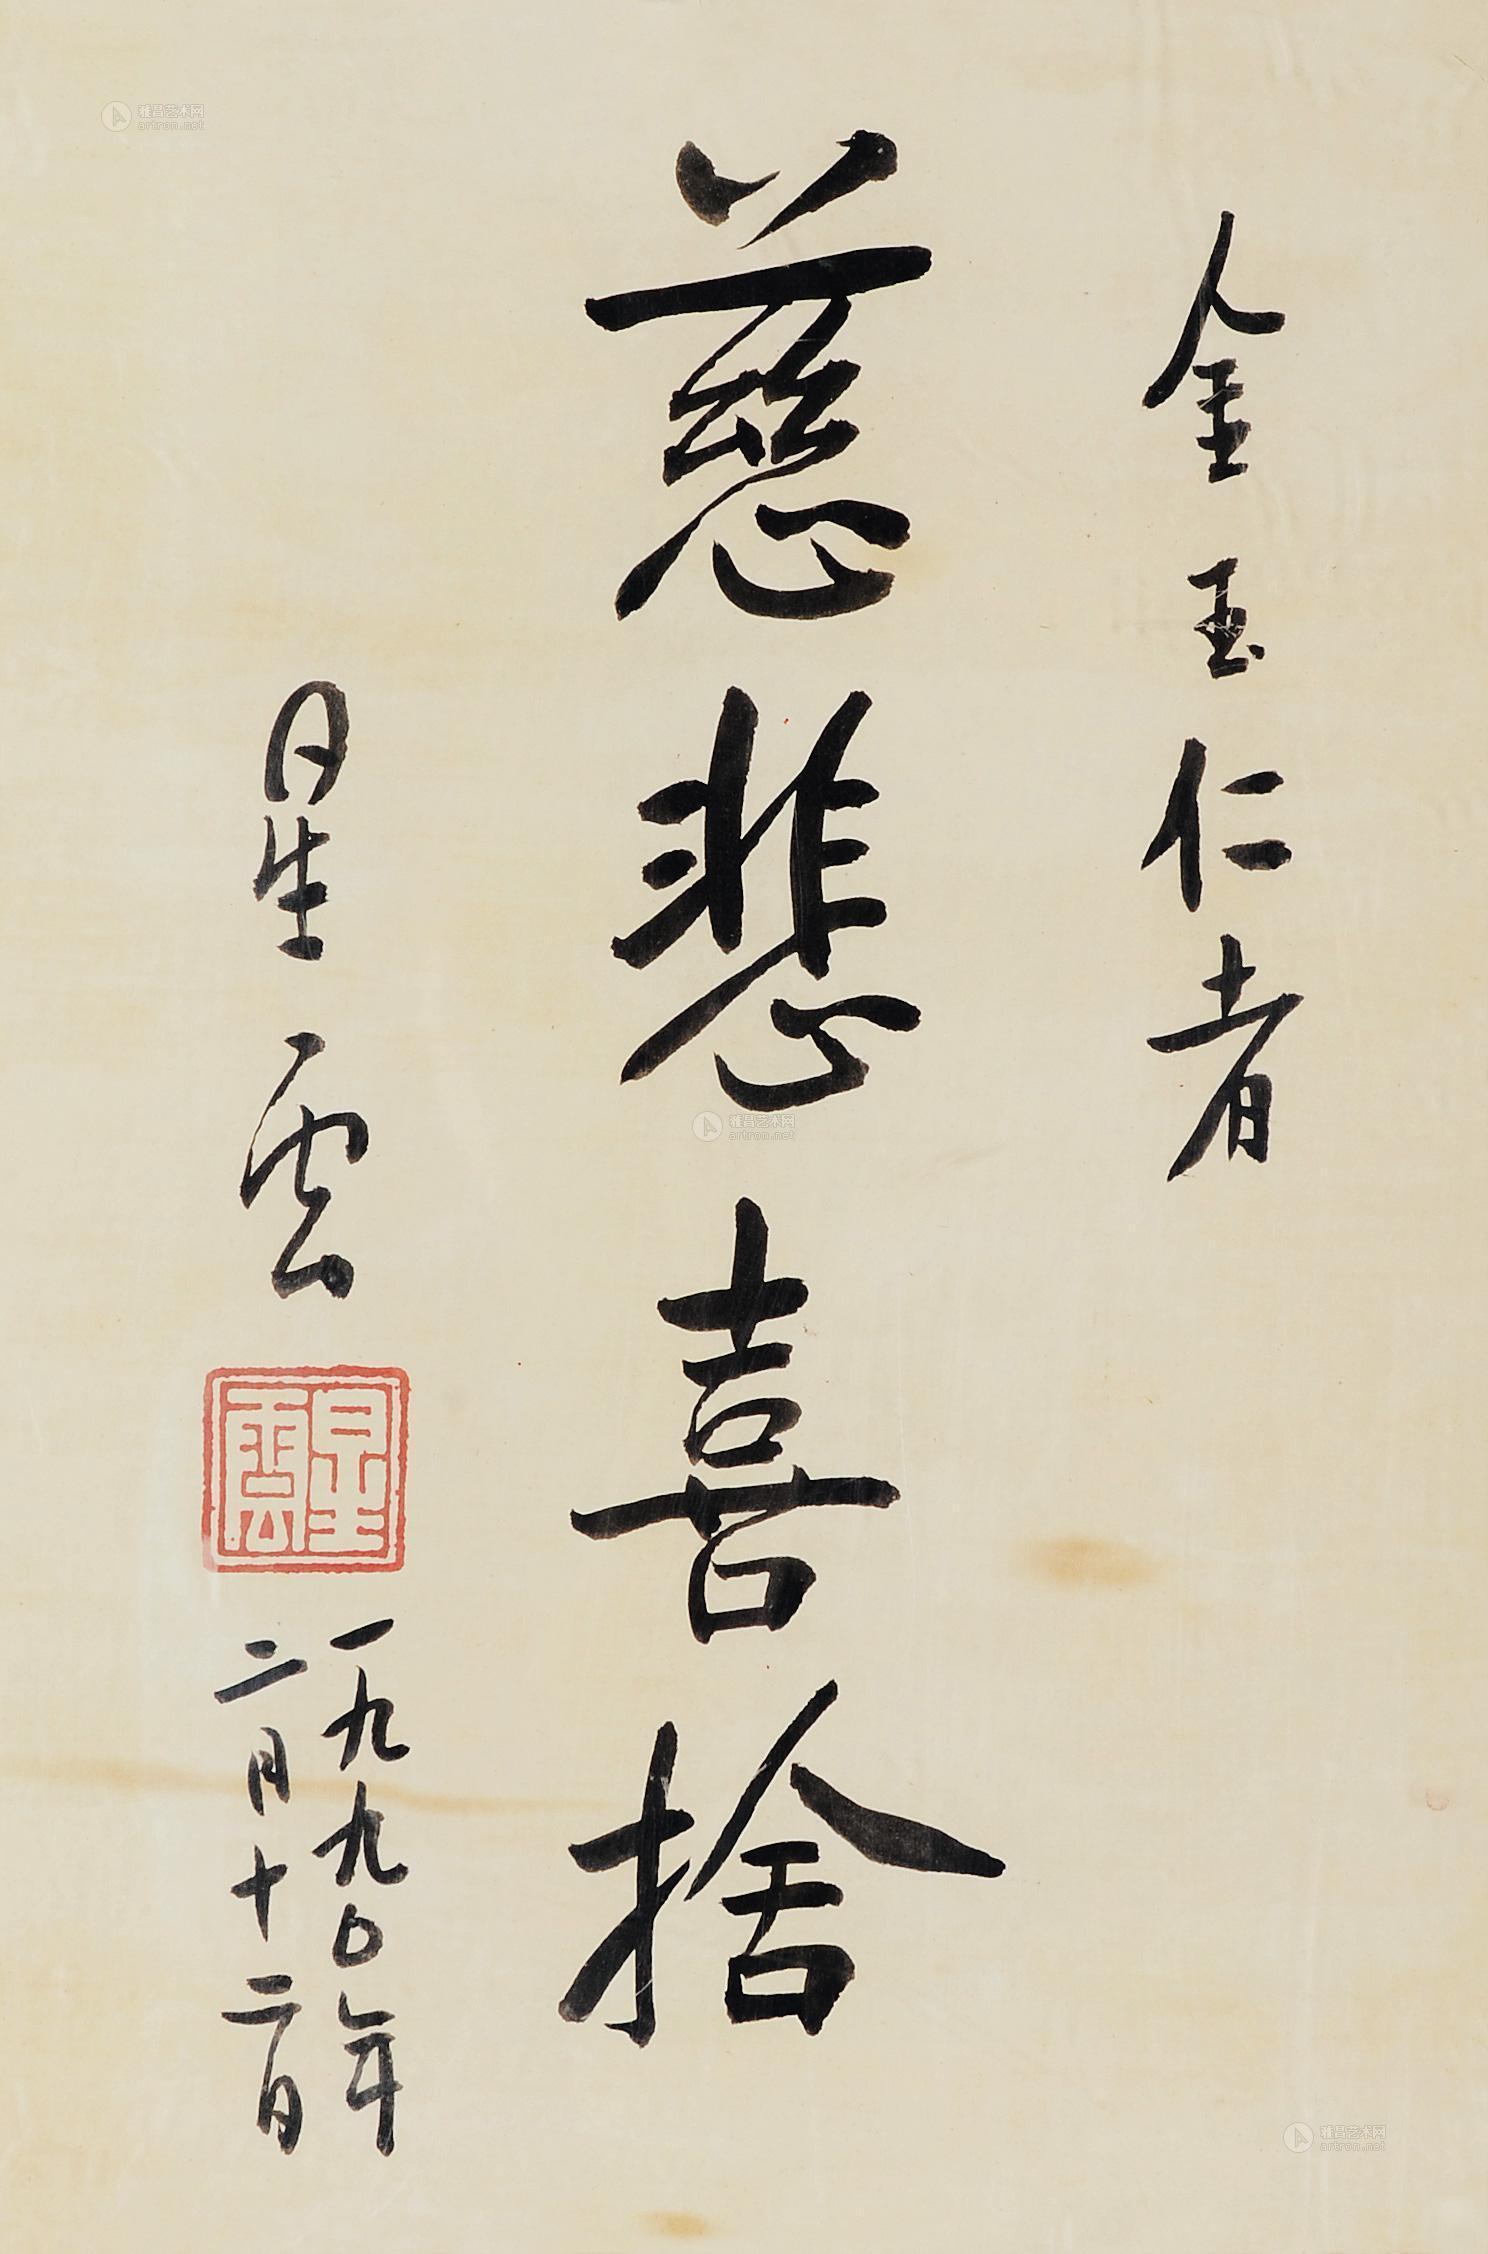 金玉仁者
慈悲喜捨
星雲
星雲
一九九〇年
二月十二日
雅昌艺术网
artron.net
雅昌艺术网
artron.net
雅昌艺术网
artron.net